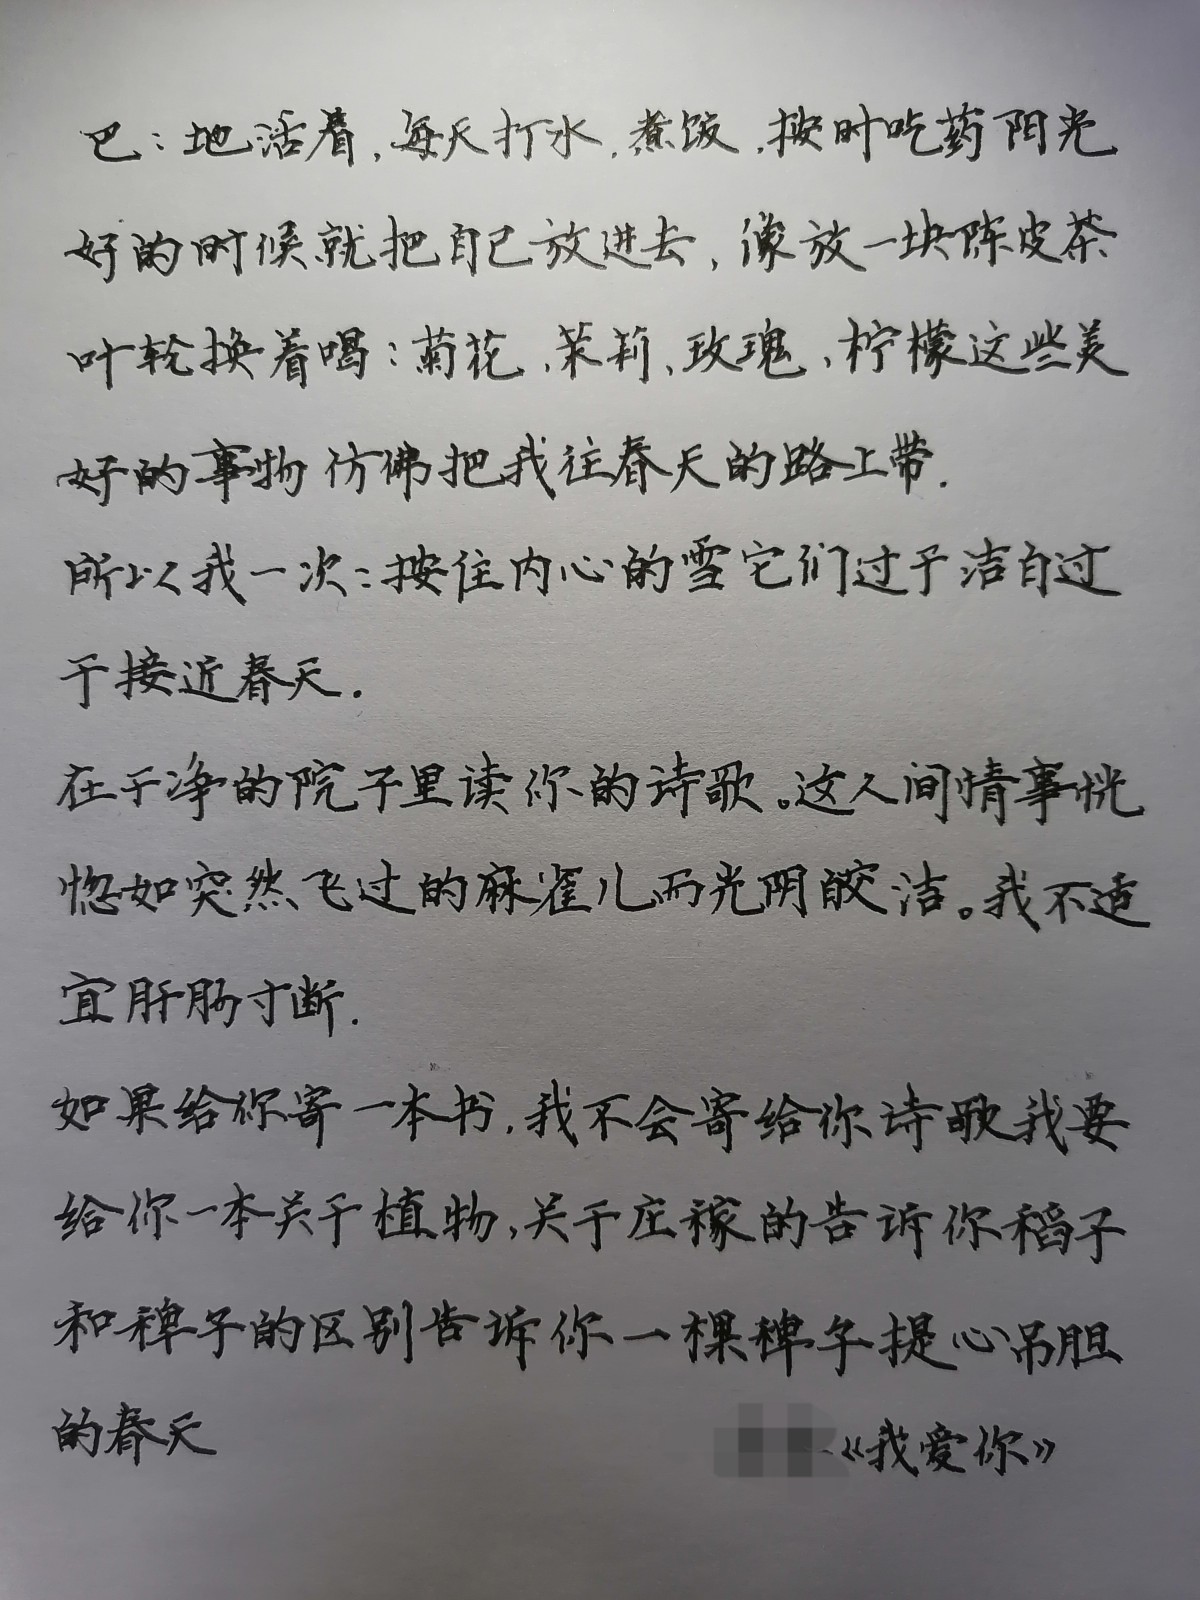 巴：地活着，每天打水，煮饭，按时吃药阳光
好的时候就把自己放进去，像放一块陈皮茶
叶轮换着喝：菊花，茉莉、玫瑰，柠檬这些美
好的事物仿佛把我往春天的路上带.
所以我一次：按住内心的雪它们过于洁白过
于接近春天.
在干净的院子里读你的诗歌。这人间情事恍
惚如突然飞过的麻雀儿而光阴皎洁。我不适
宜肝肠寸断.
如果给你寄一本书，我不会寄给你诗歌我要
给你一本关于植物，关于庄稼的告诉你稻子
和稗子的区别告诉你一棵稗子提心吊胆
的春天
《我爱你》